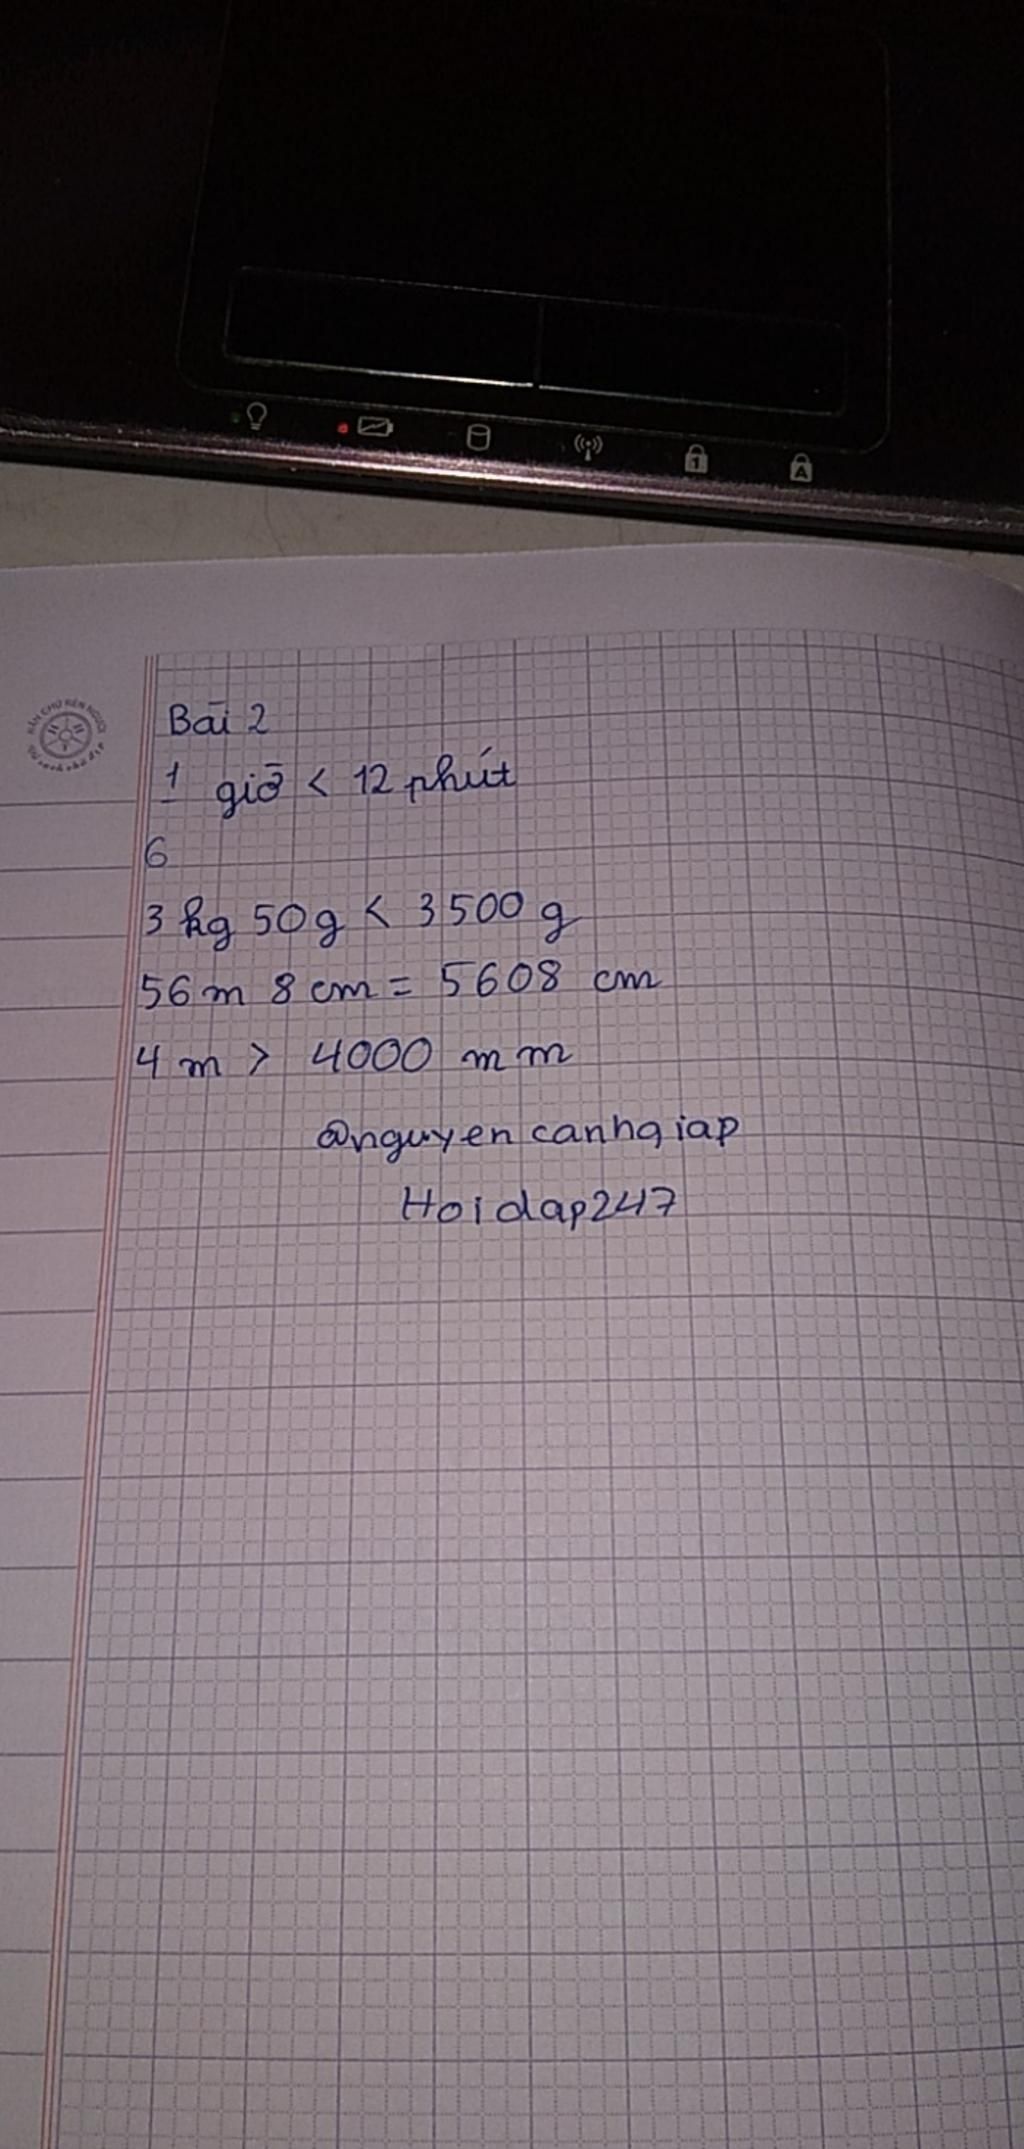 Bài 2
1 giờ < 12 phút
6
3 kg 50g < 3500 g
56 m 8 cm = 5608 cm
4 m > 4000 mm
@nguyencanhgiap
Hoidap247